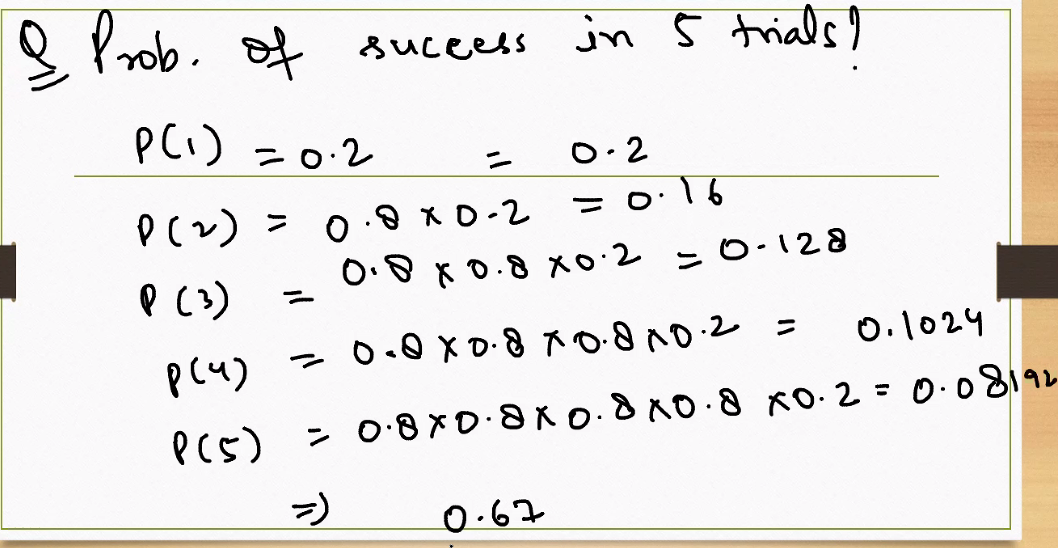 Q Prob. of success in 5 trials?
P(1) = 0.2 = 0.2
P(2) = 0.8 x 0.2 = 0.16
P(3) = 0.8 x 0.8 x 0.2 = 0.128
P(4) = 0.8 x 0.8 x 0.8 x 0.2 = 0.1024
P(5) = 0.8 x 0.8 x 0.8 x 0.8 x 0.2 = 0.08192
=) 0.67